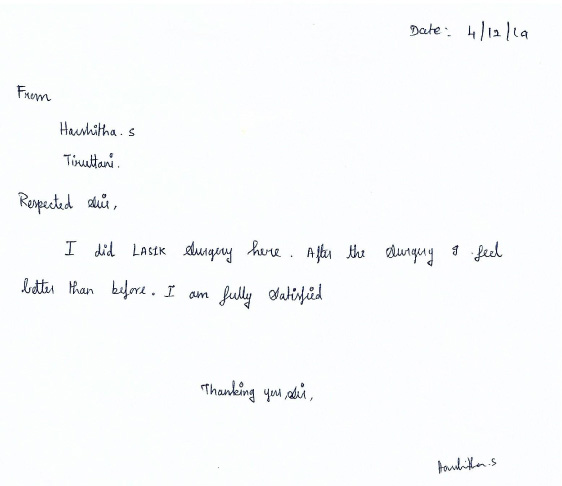 Date:- 4/12/19
From
Harshitha. S
Tiruttani.
Respected sir,
I did LASIK surgery here. After the surgery I feel
better than before. I am fully satisfied
Thanking you, sir,
Harshitha. S